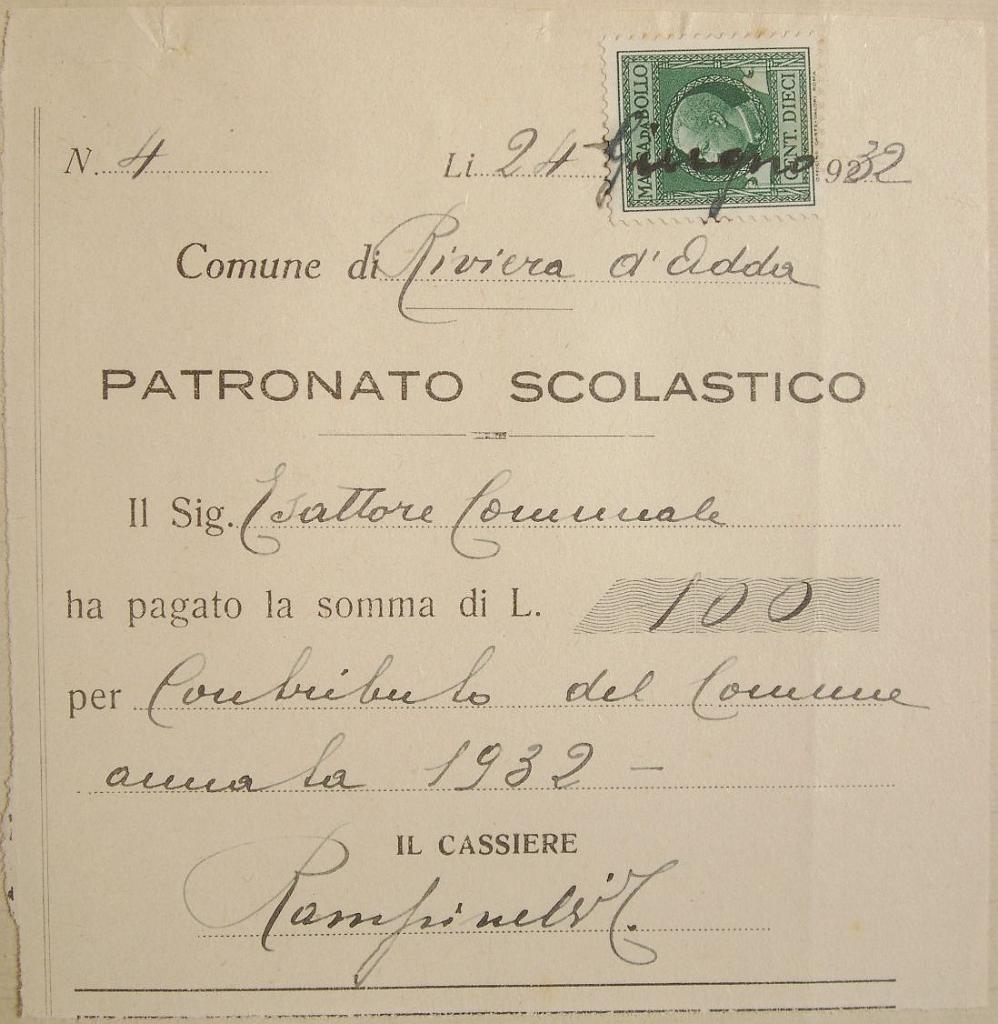 MARCA DA BOLLO
CENT. DIECI
N. 4 Li 24 Giugno 932
Comune di Riviera d'Adda
PATRONATO SCOLASTICO
Il Sig. Esattore Comunale
ha pagato la somma di L. 100
per Contributo del Comune
annata 1932 -
IL CASSIERE
Rampinelli